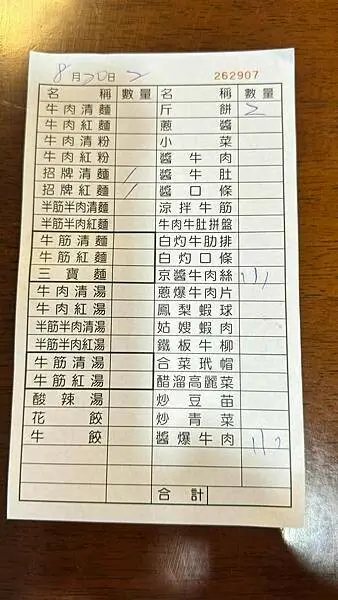 8月20日 2 262907
名 稱 數量 名 稱 數量
牛肉清麵 斤餅 2
牛肉紅麵 蔥醬
牛肉清粉 小菜
牛肉紅粉 醬牛肉
招牌清麵 / 醬牛肚
招牌紅麵 / 醬口條
半筋半肉清麵 涼拌牛筋
半筋半肉紅麵 牛肉牛肚拼盤
牛筋清麵 白灼牛肋排
牛筋紅麵 白灼口條
三寶麵 京醬牛肉絲
牛肉清湯 蔥爆牛肉片
牛肉紅湯 鳳梨蝦球
半筋半肉清湯 姑嫂蝦肉
半筋半肉紅湯 鐵板牛柳
牛筋清湯 合菜玳帽
牛筋紅湯 醋溜高麗菜
酸辣湯 炒豆苗
花餃 炒青菜
牛餃 醬爆牛肉
合計